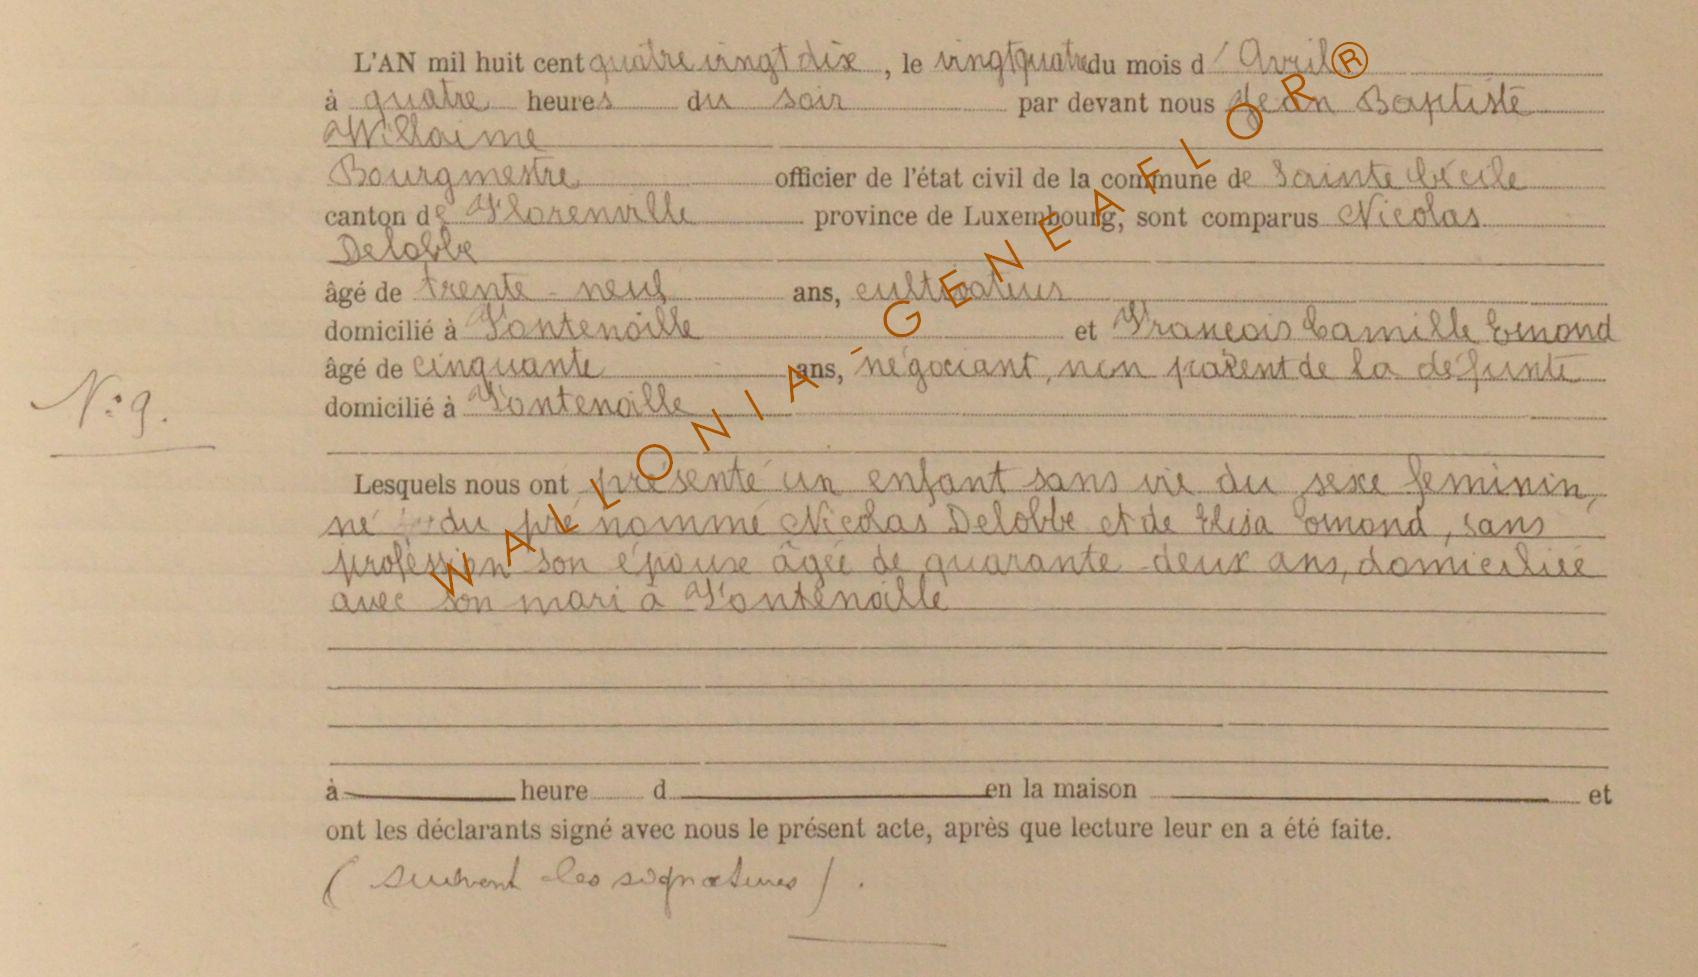 L'AN mil huit cent quatre vingt dix, le vingtquatre du mois d'Avril
à quatre heures du soir par devant nous Jean Baptiste
Willaime
Bourgmestre officier de l'état civil de la commune de Sainte Cécile
canton de Florenville province de Luxembourg, sont comparus Nicolas
Delobbe
âgé de trente-neuf ans, cultivateur
domicilié à Fontenoille et François Camille Emond
âgé de cinquante ans, négociant, non parent de la défunte
domicilié à Fontenoille
N° 9.
Lesquels nous ont présenté un enfant sans vie du sexe feminin,
né du pré nommé Nicolas Delobbe et de Elisa Emond, sans
profession son épouse âgée de quarante-deux ans, domiciliée
avec son mari à Fontenoille
à heure d en la maison et
ont les déclarants signé avec nous le présent acte, après que lecture leur en a été faite.
(suivent les signatures).
WALLONIA-GENEAFLOR®